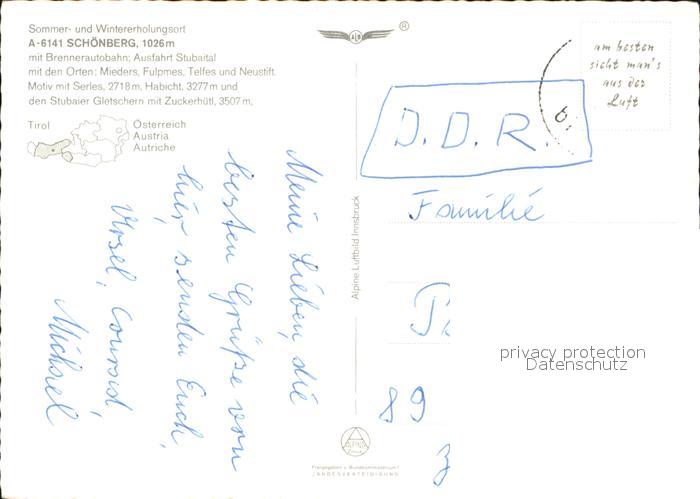 Sommer- und Wintererholungsort
A-6141 SCHÖNBERG, 1026 m
mit Brennerautobahn; Ausfahrt Stubaital
mit den Orten: Mieders, Fulpmes, Telfes und Neustift.
Motiv mit Serles, 2718 m, Habicht, 3277 m und
den Stubaier Gletschern mit Zuckerhütl, 3507 m,
Tirol
Österreich
Austria
Autriche
®
am besten
sieht man's
aus der
Luft
D.D.R.
Familie
89
Meine Lieben, die
besten Grüße von
hier senden Euch
Ursel, Conrad,
Michael
Alpine Luftbild Innsbruck
privacy protection
Datenschutz
ALPINE
Freigegeben v. Bundesministerium f.
LANDESVERTEIDIGUNG